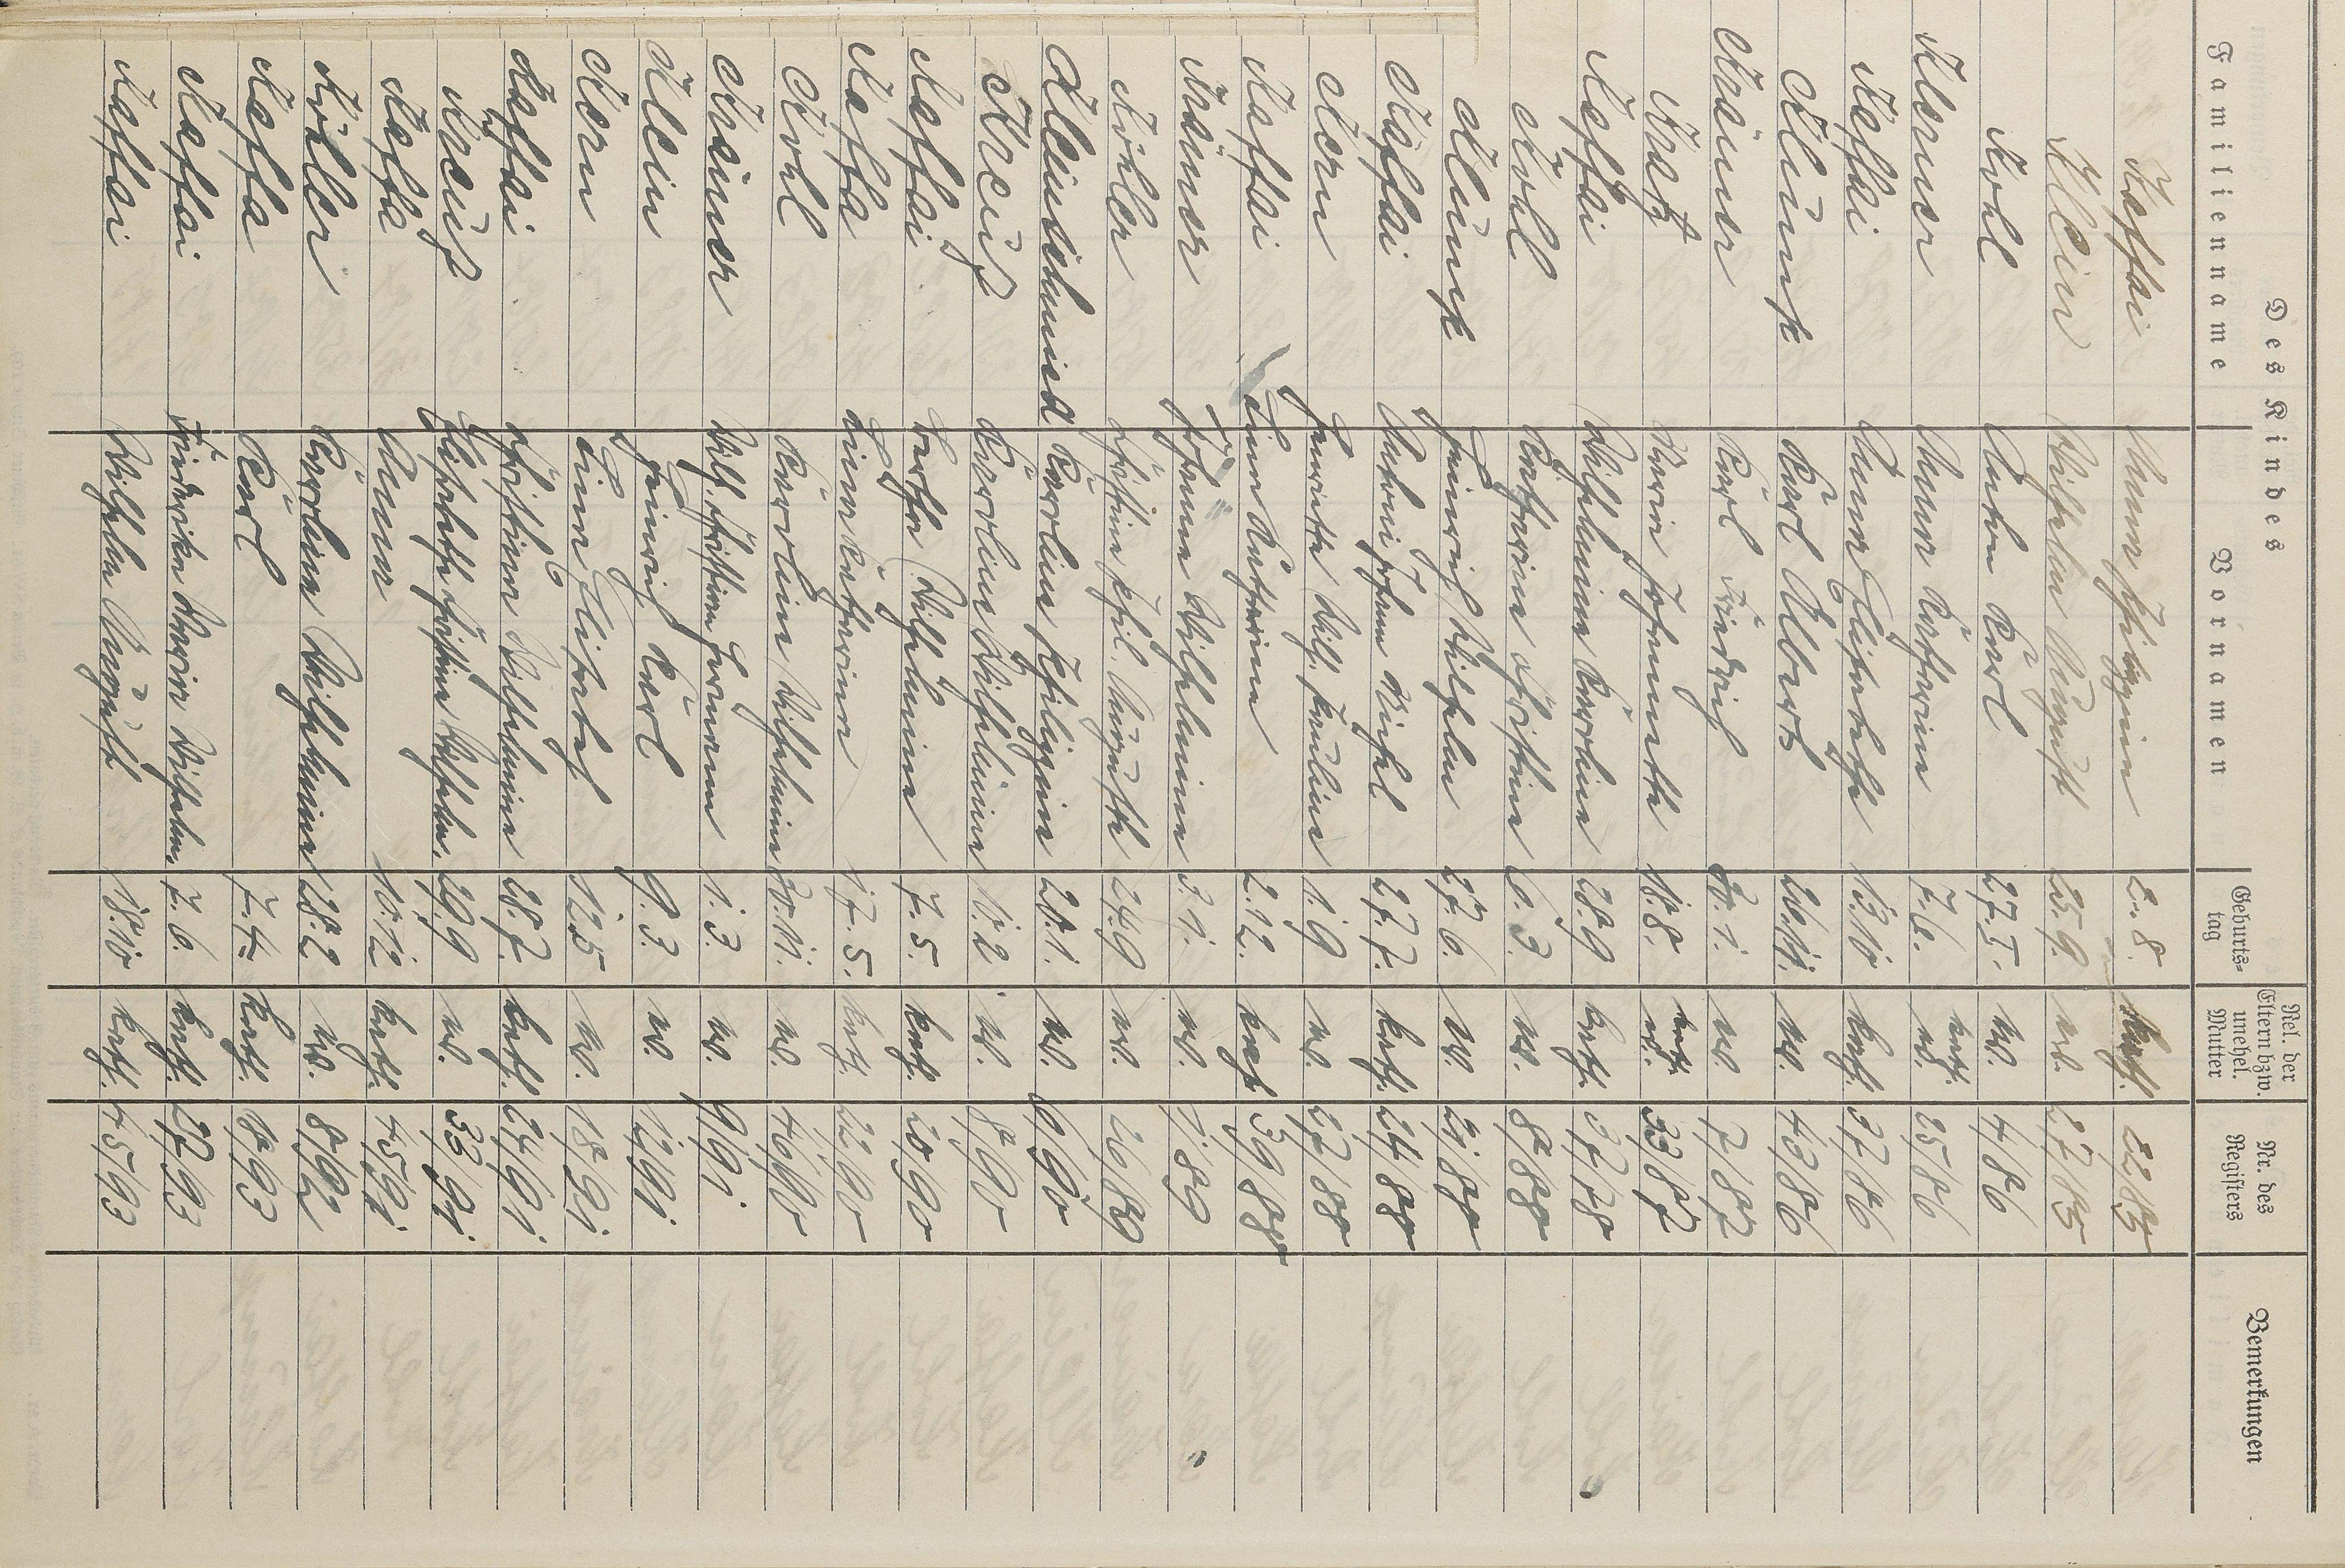 Des Kindes
Familienname Vornamen Geburts-
tag Rel. der
Eltern bzw.
unehel.
Mutter Nr. des
Registers Bemerkungen
Kaffai Anna Philippine 2. 8. kath. 22/85
Klein Wilhelm August 25. 9. ev. 27/85
Kohl Anton Karl 27. 5. ev. 4/86
Klerner Anna Katharina 7. 6. kath. ev. 25/86
Kaffai Anna Elisabeth 13. 10 kath. 37/86
Klump Karl Albert 26. 11. ev. 43/86
Krämer Karl Friedrich 30. 1. ev. 7/87
Kratz Maria Johannette 18. 8. kath. ev. 33/87
Kaffai Wilhelmine Karoline 28. 9 kath. 37/88
Kohl Katharina Christine 6. 3. ev. 8/88
Klump Heinrich Wilhelm 27. 6. ev. 21/88
Kaffai Anton Johann Michel 27. 7. kath. 24/88
Kern Henriette Wilh. Pauline 1. 9 ev. 27/88
Kaffai Lina Katharina 2. 12. kath 39/88
Krämer Johanna Wilhelmine 3. 1. ev. 1/89
Köhler Christine Phil. Auguste 24. 9 ev. 26/89
Kleinschmied Karoline Philippine 20. 1. ev. 6/90
Kreuß Karoline Wilhelmine 10. 2 ev. 8/90
Kaffai Bertha Wilhelmine 7. 5. kath. 20/90
Kaffa Lina Katharina 17. 5. kath. 22/90
Kohl Karoline Wilhelmine 30. 11. ev. 46/90
Krämer Wilh. Christiane Hermann 1. 3. ev. 9/91
Klein Heinrich Karl 9. 3. ev. 12/91
Kern Lina Elisabeth 12. 5 ev. 18/91
Kaffai Christine Wilhelmine 28. 7. kath. 24/91
Kreuß Elisabeth Christine Wilhelm. 29. 9 ev. 33/91
Kaffa Anna 10. 12 kath. 45/91
Köller Karoline Wilhelmine 28. 2 ev. 8/92
Kaffa Karl 7. 4. kath. 18/93
Kaffai Friederike Maria Wilhelm. 7. 6. kath. 27/93
Kaffai Wilhelm August 18. 10 kath. 45/93